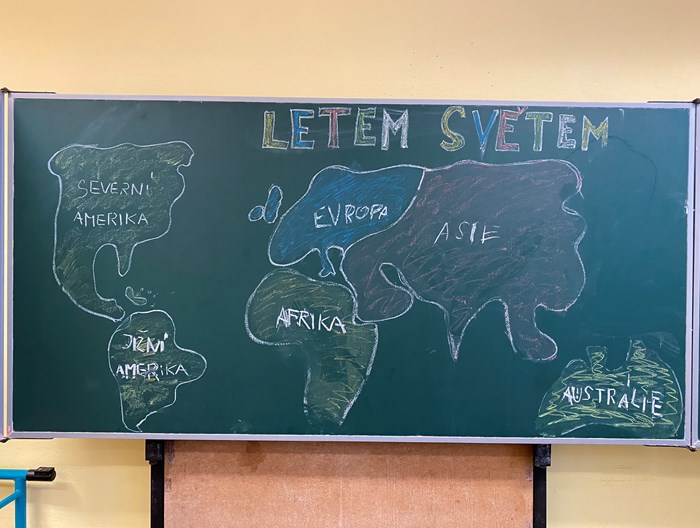 LETEM SVĚTEM
SEVERNÍ
AMERIKA
EVROPA
ASIE
AFRIKA
JIŽNÍ
AMERIKA
AUSTRALIE